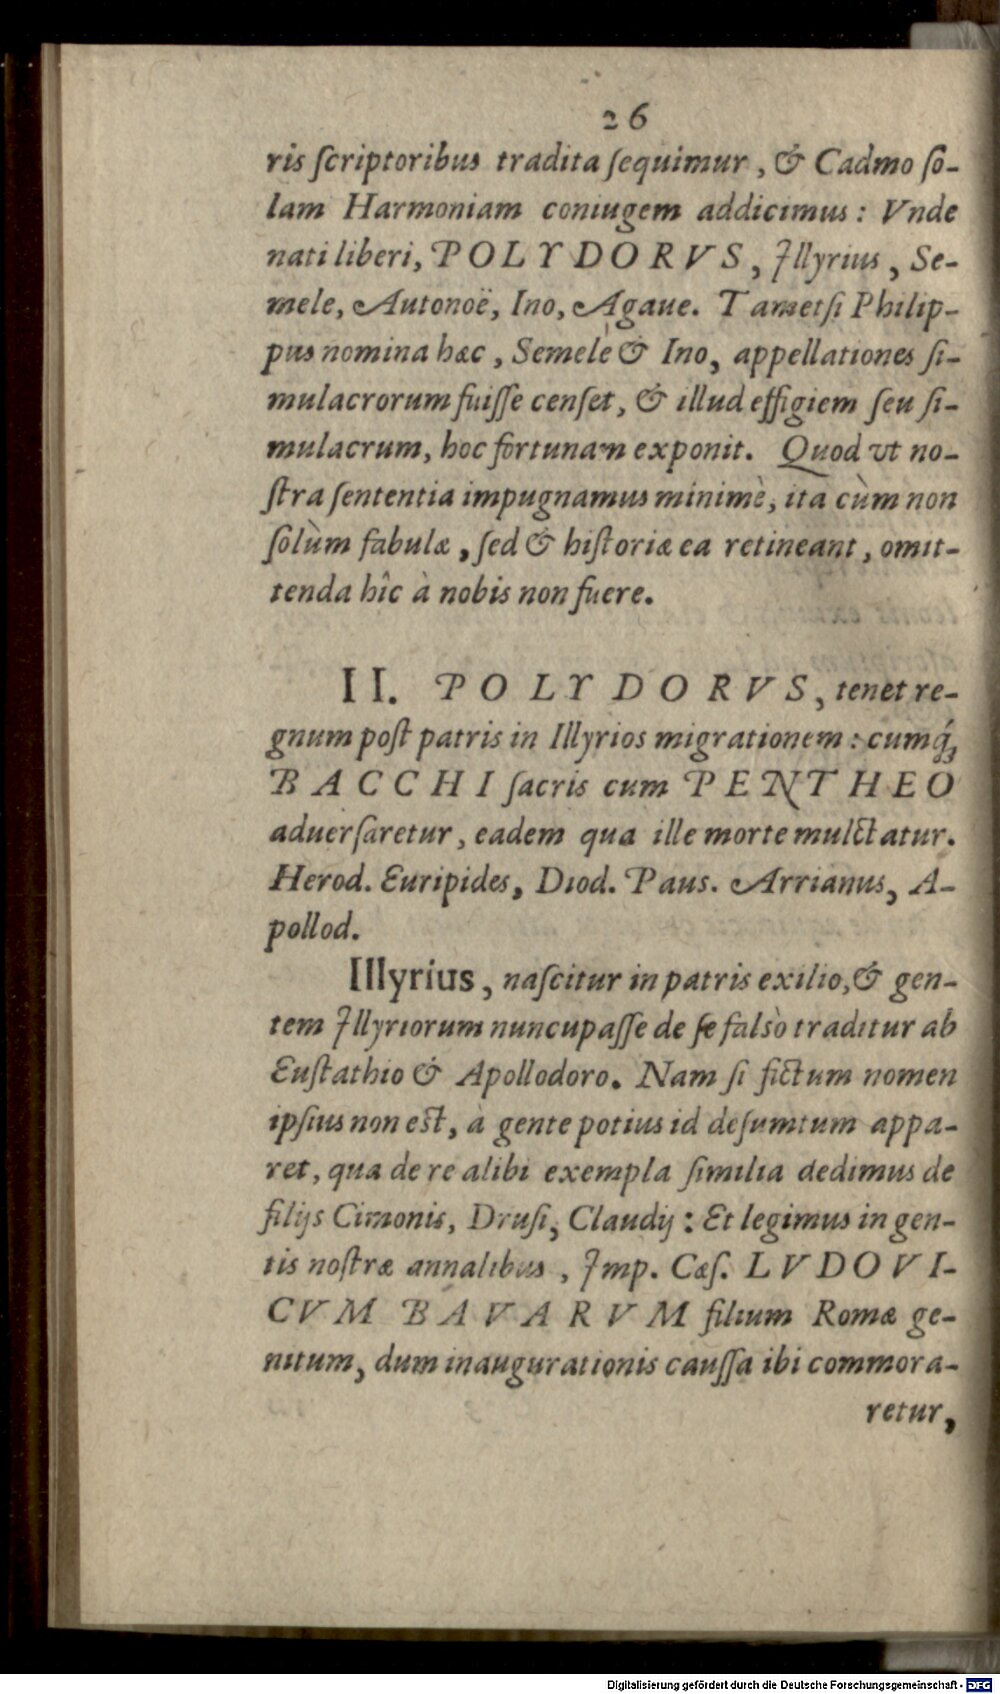 26
ris ſcriptoribus tradita ſequimur, & Cadmo ſo-
lam Harmoniam coniugem addicimus: Vnde
nati liberi, POLYDORVS, Illyrius, Se-
mele, Autonoë, Ino, Agaue. Tametſi Philip-
pus nomina hæc, Semele & Ino, appellationes ſi-
mulacrorum fuiſſe cenſet, & illud effigiem ſeu ſi-
mulacrum, hoc fortunam exponit. Quod vt no-
ſtra ſententia impugnamus minimè, ita cùm non
ſolùm fabulæ, ſed & hiſtoriæ ea retineant, omit-
tenda hîc à nobis non fuere.
II. POLYDORVS, tenet re-
gnum poſt patris in Illyrios migrationem: cumq́;
BACCHI ſacris cum PENTHEO
aduerſaretur, eadem qua ille morte mulctatur.
Herod. Euripides, Diod. Paus. Arrianus, A-
pollod.
Illyrius, naſcitur in patris exilio, & gen-
tem Illyriorum nuncupaſſe de ſe falsò traditur ab
Euſtathio & Apollodoro. Nam ſi fictum nomen
ipſius non eſt, à gente potius id deſumtum appa-
ret, qua de re alibi exempla ſimilia dedimus de
filijs Cimonis, Druſi, Claudij: Et legimus in gen-
tis noſtræ annalibus, Imp. Cæſ. LVDOVI-
CVM BAVARVM filium Romæ ge-
nitum, dum inaugurationis cauſſa ibi commora-
retur,
Digitalisierung gefördert durch die Deutsche Forschungsgemeinschaft - DFG